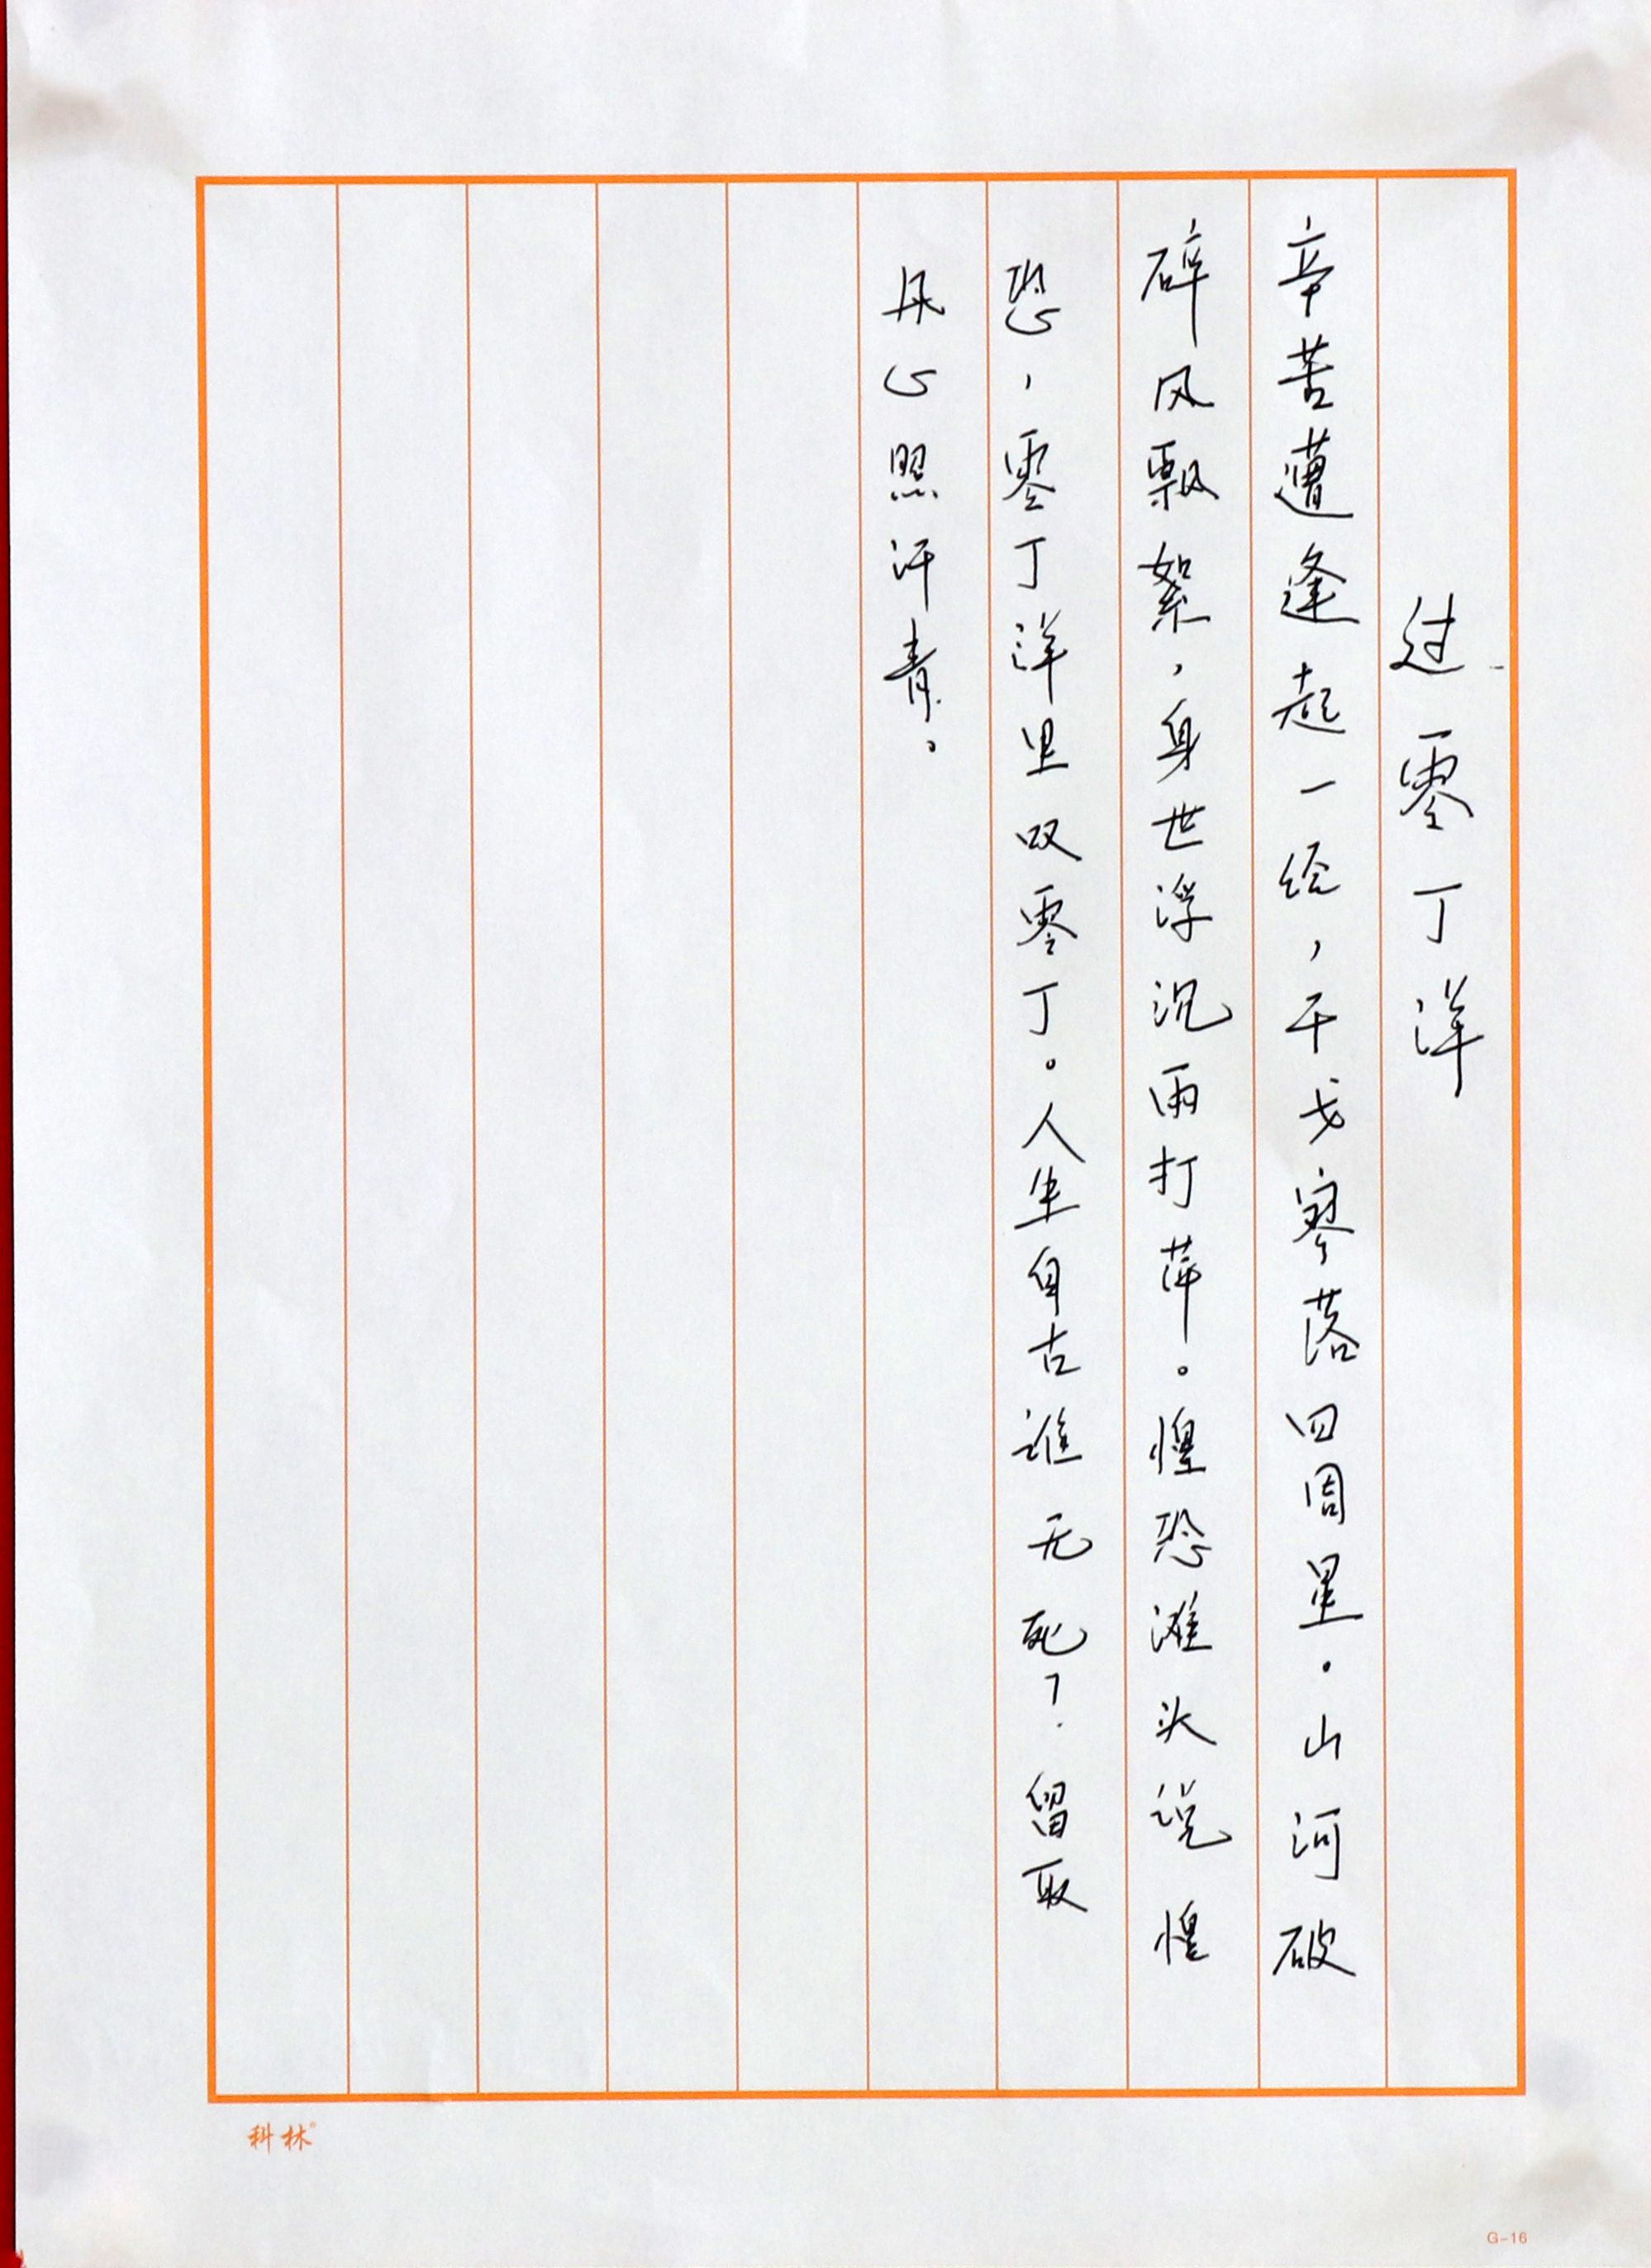 过零丁洋
辛苦遭逢起一经，干戈寥落四周星。山河破
碎风飘絮，身世浮沉雨打萍。惶恐滩头说惶
恐，零丁洋里叹零丁。人生自古谁无死？留取
丹心照汗青。
科林®
G-16